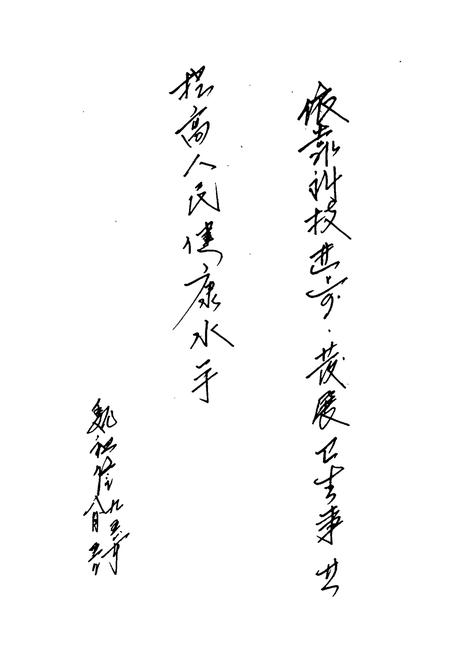 依靠科技进步·发展卫生事业
提高人民健康水平
魏祖信 九五年
八月